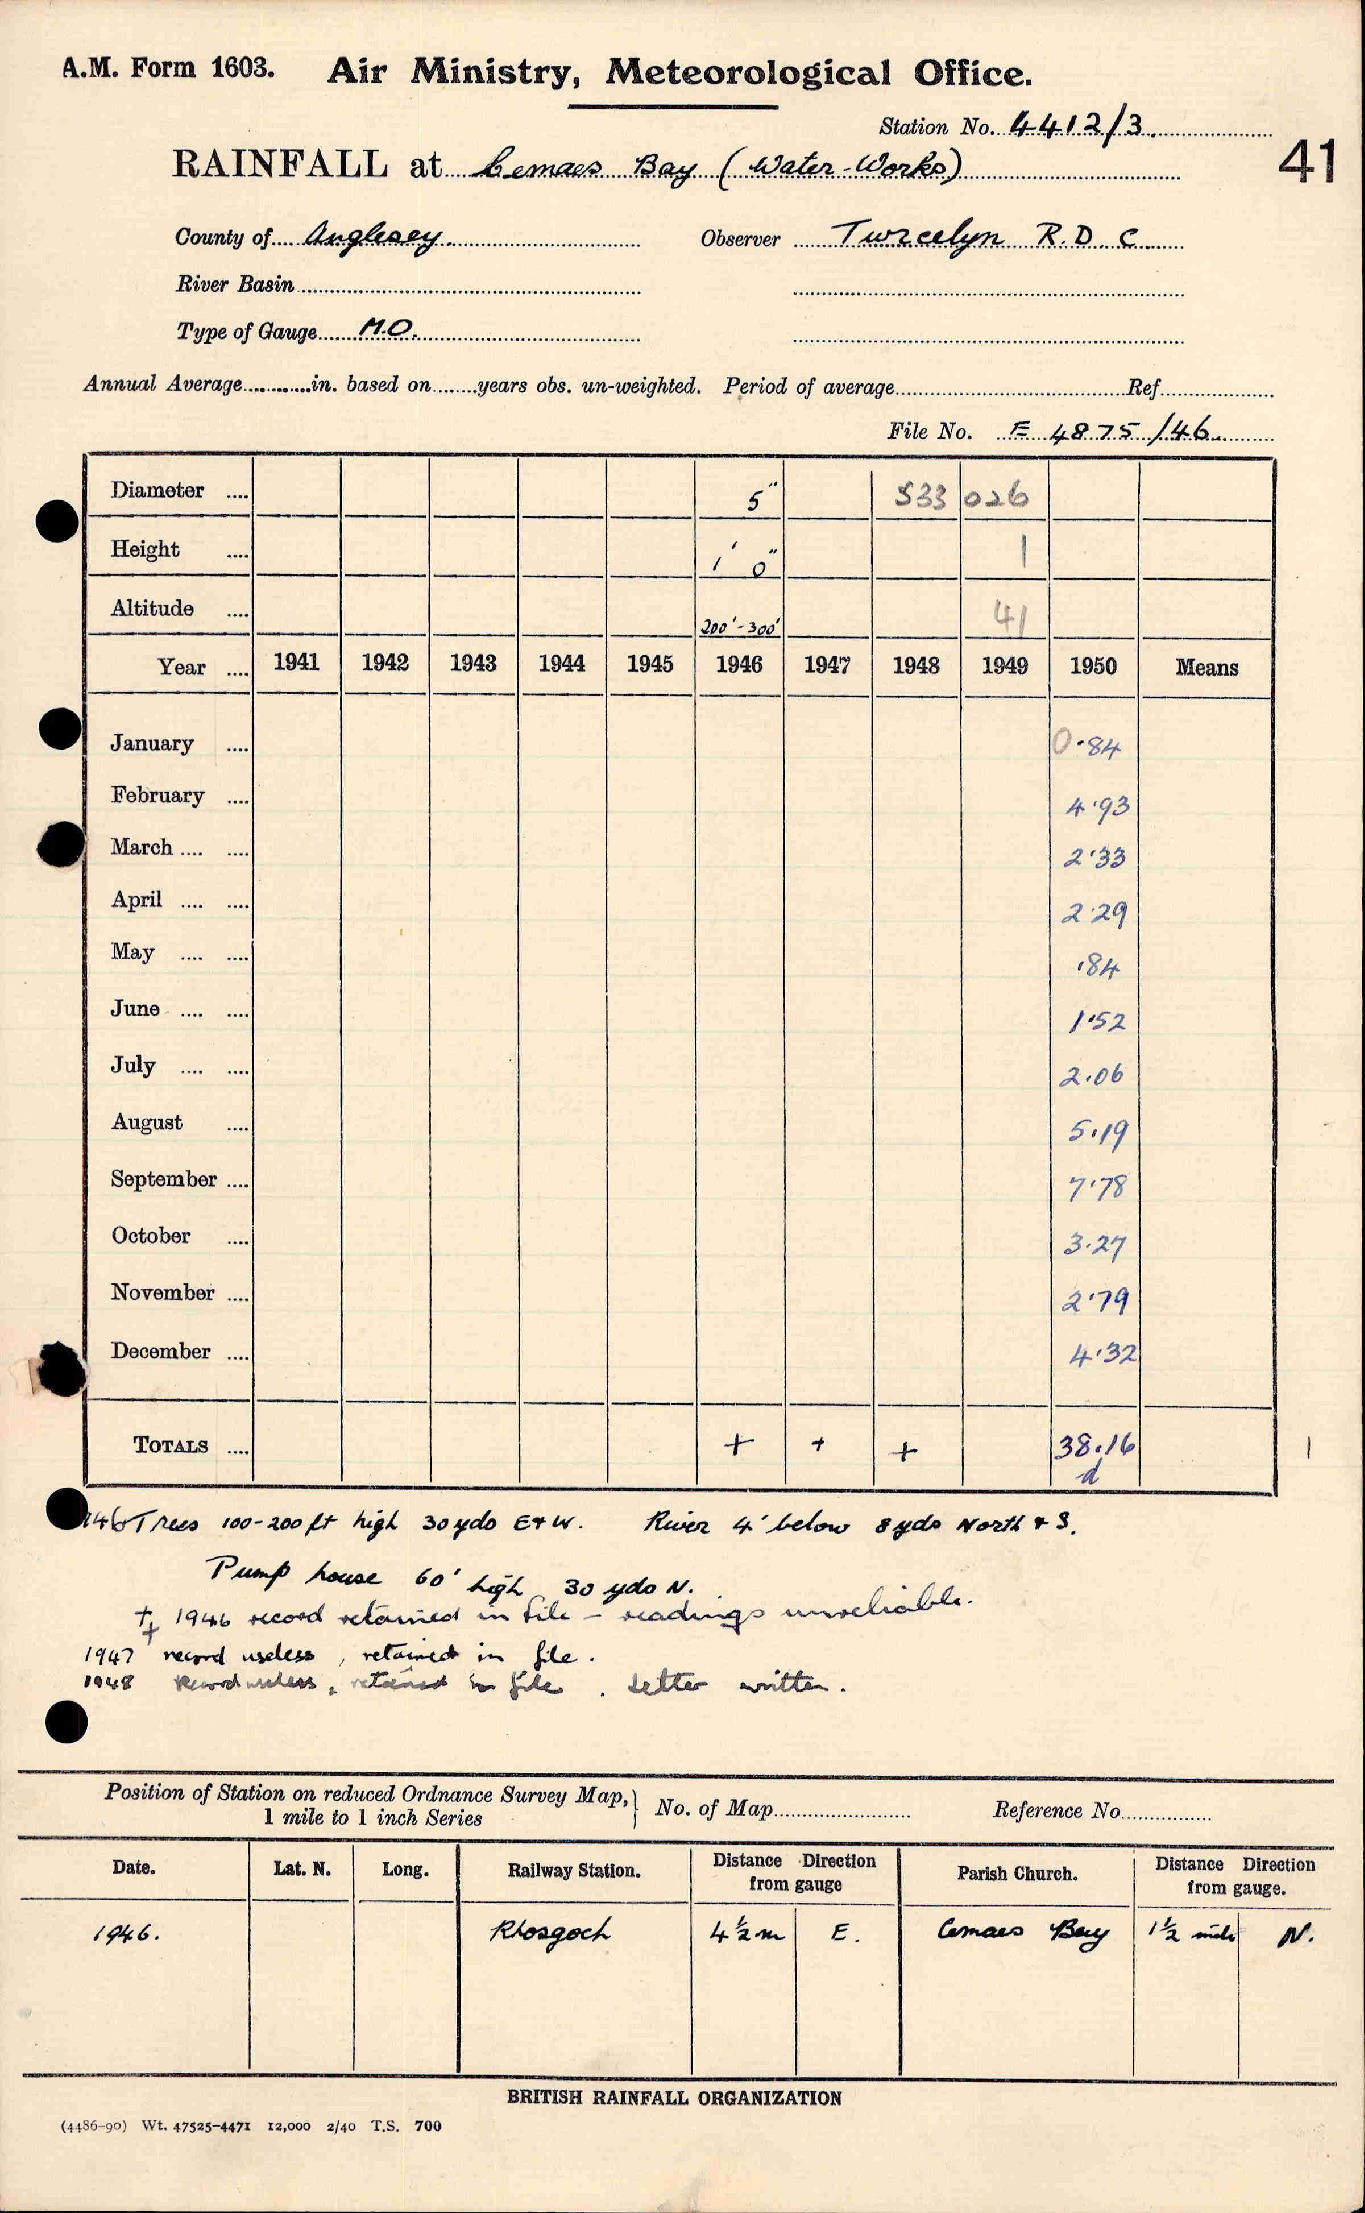 A.M. Form 1603. Air Ministry, Meteorological Office.
Station No. 4412/3.
41
RAINFALL at Cemaes Bay (Water-Works)
County of Anglesey. Observer Twrcelyn R.D.C
River Basin
Type of Gauge M.O.
Annual Average in. based on years obs. un-weighted. Period of average Ref
File No. E 4875/46.
Diameter 5" 533 026
Height 1' 0" 1
Altitude 200'-300' 41
Year 1941 1942 1943 1944 1945 1946 1947 1948 1949 1950 Means
January 0.84
February 4.93
March 2.33
April 2.29
May .84
June 1.52
July 2.06
August 5.19
September 7.78
October 3.27
November 2.79
December 4.32
TOTALS + + + 38.16
d
1
1946 Trees 100-200 ft high 30 yds E & W. River 4' below 8 yds North & S.
Pump house 60' high 30 yds N.
+ 1946 record retained in file - readings unreliable.
+
1947 record useless, retained in file.
1948 Record useless, retained in file. Letter written.
Position of Station on reduced Ordnance Survey Map, 1 mile to 1 inch Series } No. of Map Reference No.
Date. Lat. N. Long. Railway Station. Distance Direction from gauge Parish Church. Distance Direction from gauge.
1946. Rhosgoch 4½ m E. Cemaes Bay 1½ mile N.
BRITISH RAINFALL ORGANIZATION
(4486-90) Wt. 47525-4471 12,000 2/40 T.S. 700